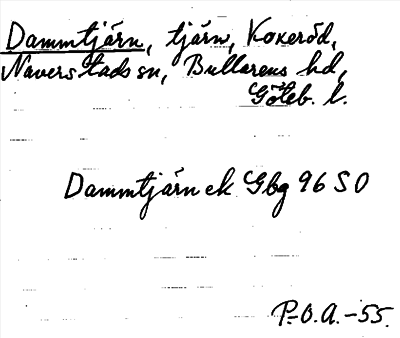 Dammtjärn, tjärn, Koxeröd,
Naverstads sn, Bullarens hd,
Göteb. l.
Dammtjärn ek Gbg 96 SO
P.O.A.-55.